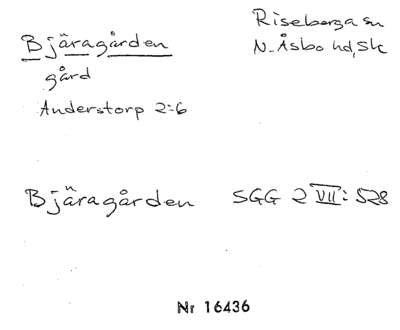 Bjäragården
gård
Anderstorp 2:6
Riseberga sn
N. Åsbo hd, Sk
Bjäragården SGG 2 VII: 528
Nr 16436